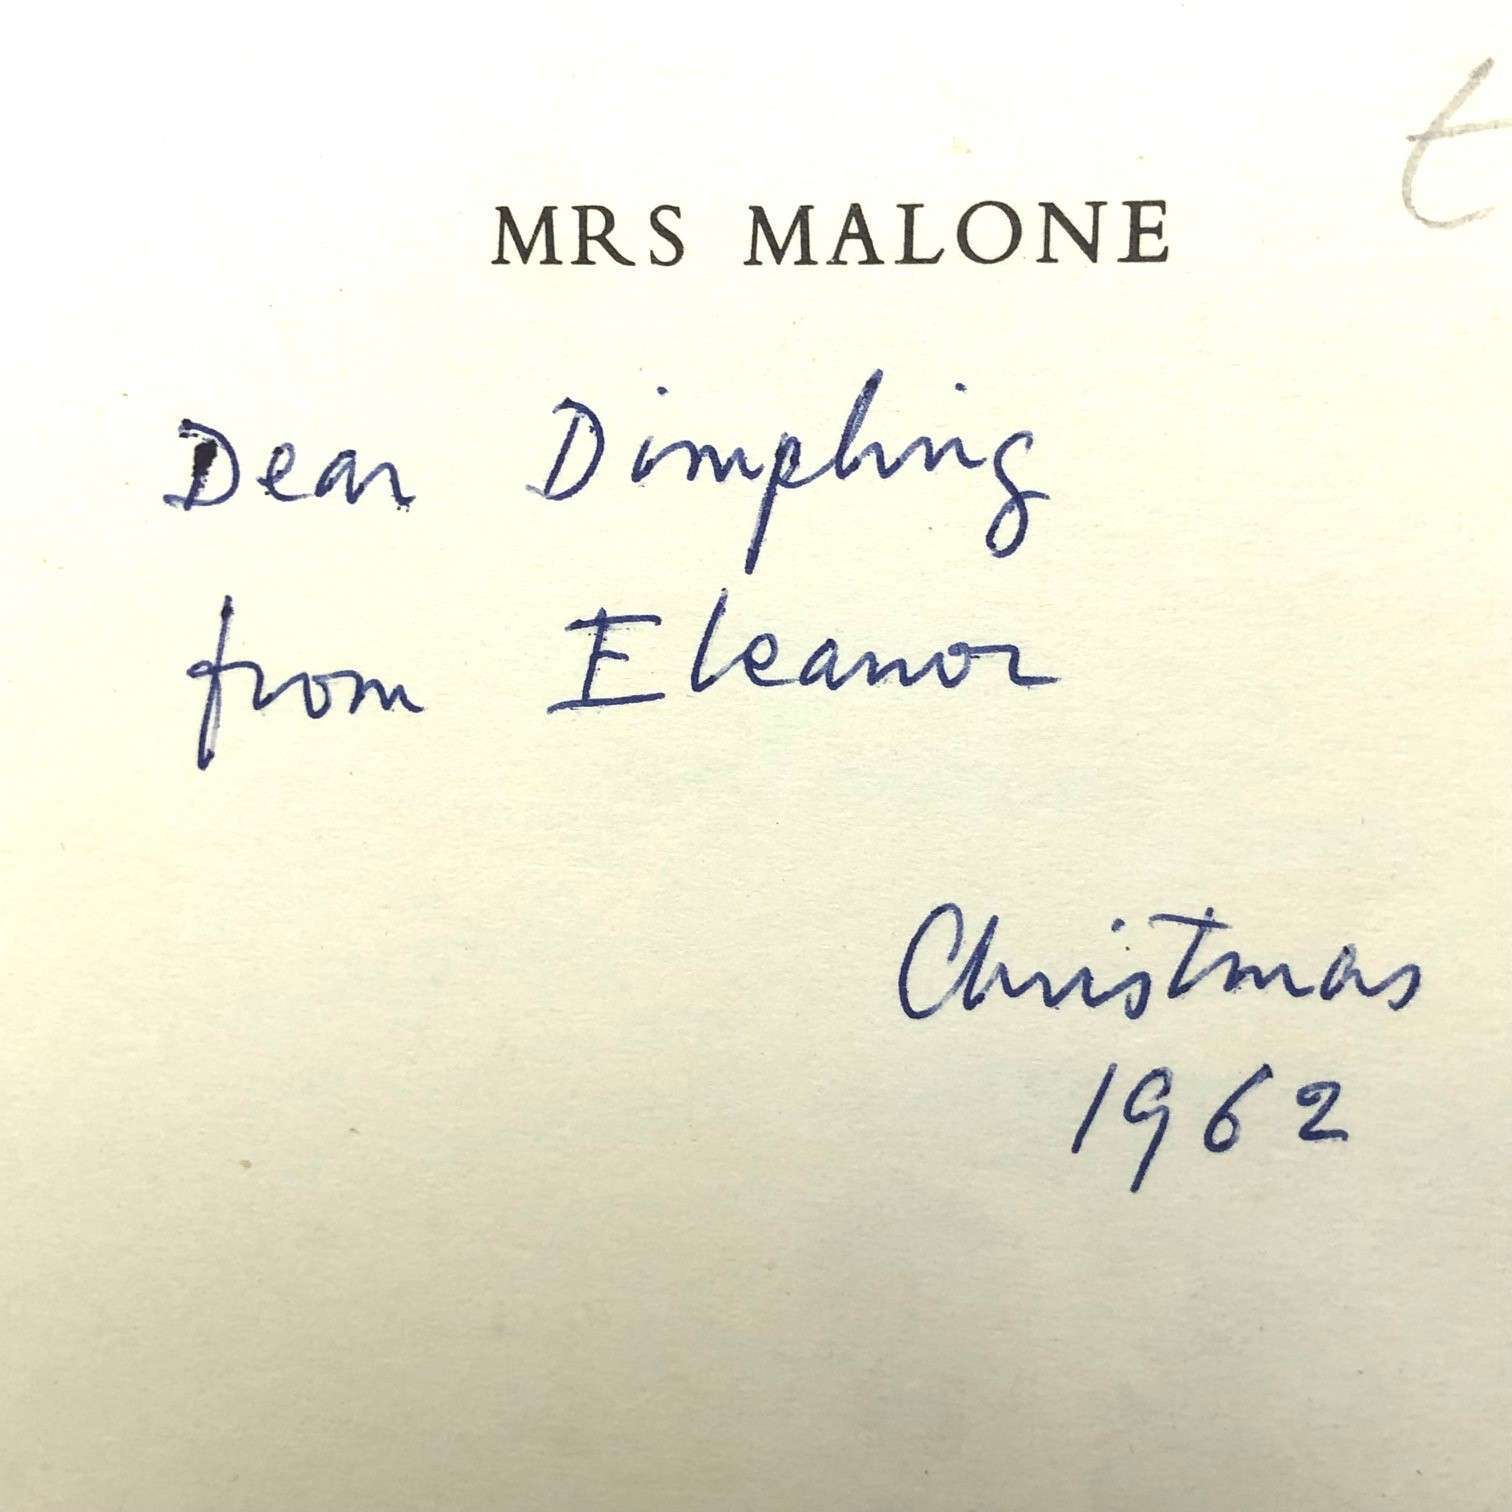 MRS MALONE
Dear Dimpling
from Eleanor
Christmas
1962